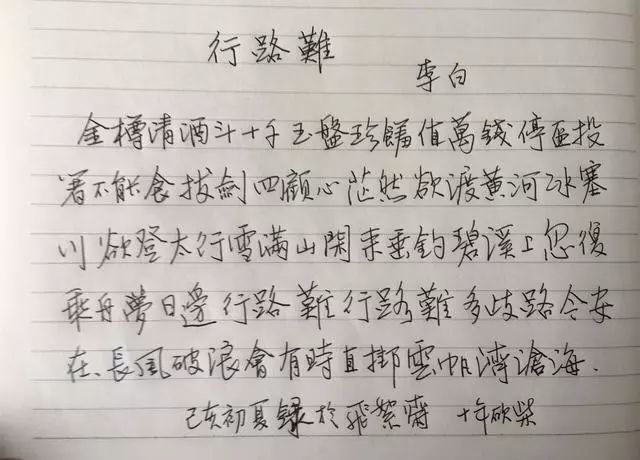 行路難
李白
金樽清酒斗十千玉盤珍饈值萬錢停盃投
箸不能食拔劍四顧心茫然欲渡黃河冰塞
川欲登太行雪滿山閑來垂釣碧溪上忽復
乘舟夢日邊行路難行路難多歧路今安
在、長風破浪會有時直掛雲帆濟滄海.
己亥初夏錄於飛絮齋 十年砍柴